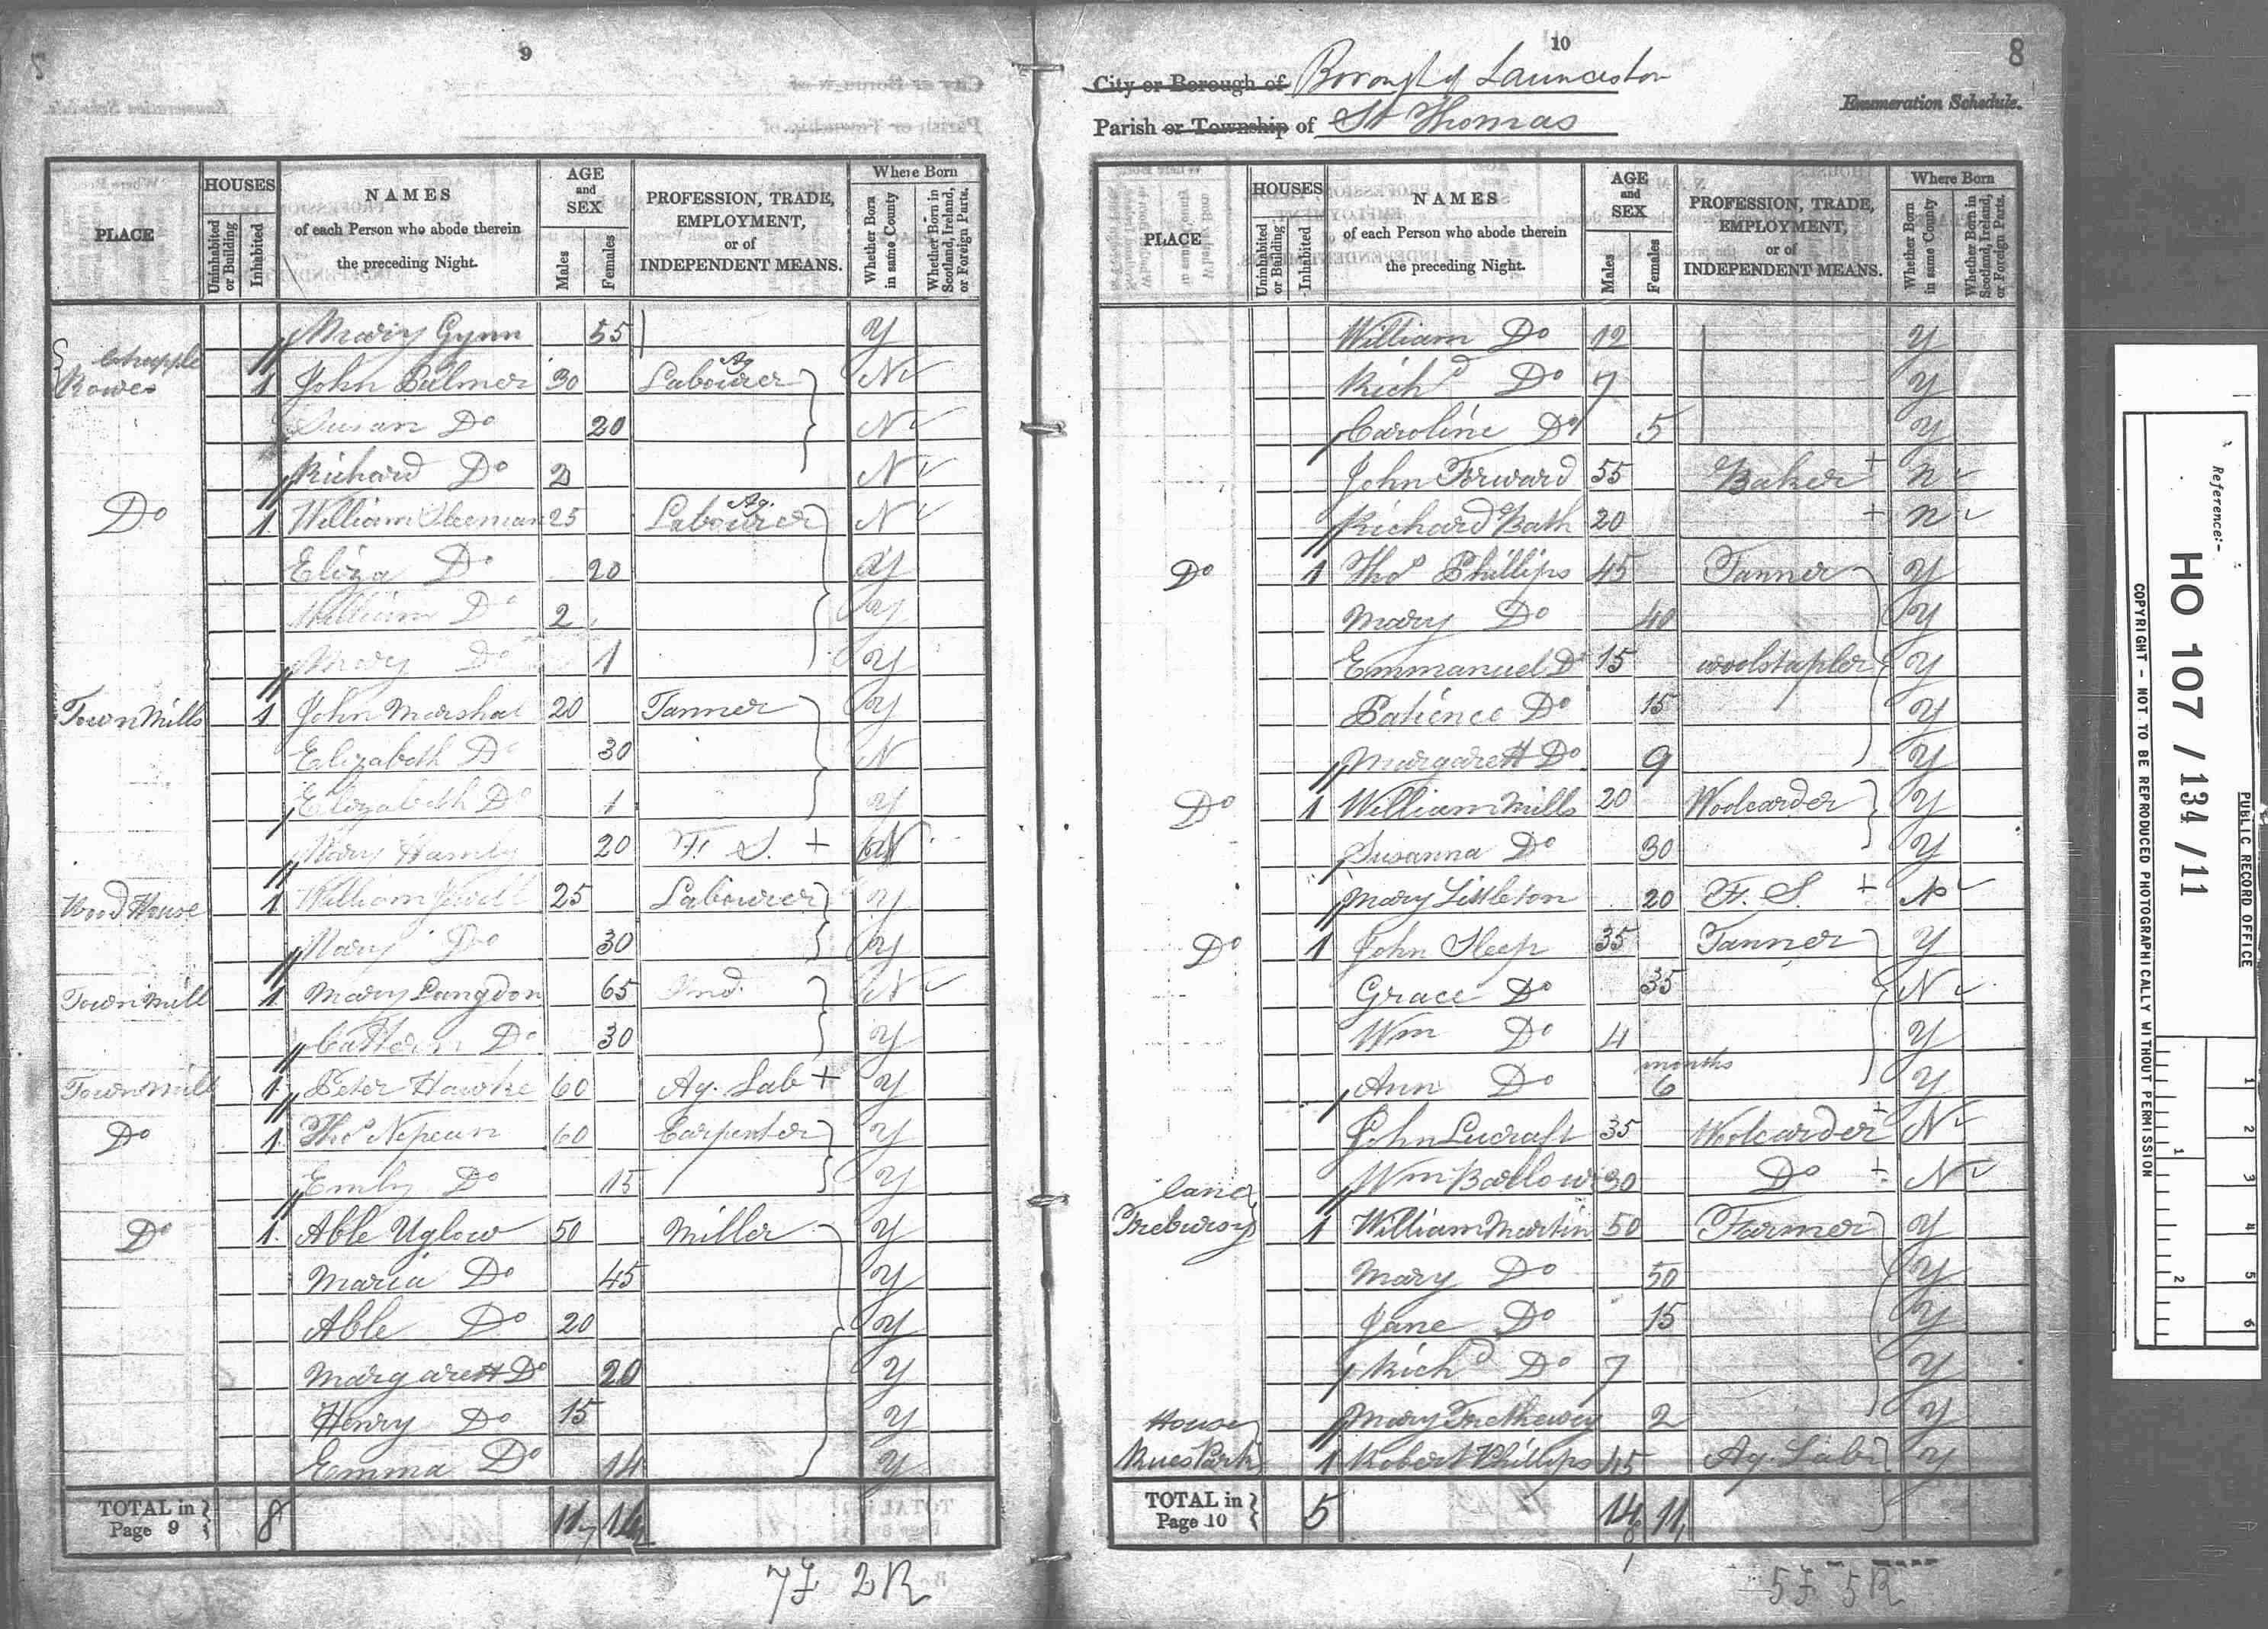 9
PLACE
HOUSES
Uninhabited or Building
Inhabited
NAMES
of each Person who abode therein
the preceding Night.
AGE
and
SEX
Males
Females
PROFESSION, TRADE,
EMPLOYMENT,
or of
INDEPENDENT MEANS.
Where Born
Whether Born in same County
Whether Born in Scotland, Ireland, or Foreign Parts.
Mary Gynn 55 Y
Chapple
Rowes 1 John Palmer 30 Ag Labourer N
Susan Do 20 N
Richard Do 2 N
Do 1 William Sleeman 25 Ag. Labourer N
Eliza Do 20 Y
William Do 2 Y
Mary Do 1 Y
Town Mills 1 John Marshal 20 Tanner Y
Elizabeth Do 30 N
Elizabeth Do 1 Y
Mary Hamly 20 F. S. + N
Wood House 1 William Jewell 25 Labourer Y
Mary Do 30 Y
Town Mill 1 Mary Langdon 65 Ind. N
Do 30 Y
Town Mill 1 Peter Hawke 60 Ag. Lab + Y
Do 1 Thos Nepean 60 Carpenter Y
Emily Do 15 Y
Do 1 Able Uglow 50 Miller Y
Maria Do 45 Y
Able Do 20 Y
Margarett Do 20 Y
Henry Do 15 Y
Emma Do 14 Y
TOTAL in
Page 9 8 11 14
7F 2R
10
8
City or Borough of Borough of Launceston
Enumeration Schedule.
Parish or Township of St Thomas
PLACE
HOUSES
Uninhabited or Building
Inhabited
NAMES
of each Person who abode therein
the preceding Night.
AGE
and
SEX
Males
Females
PROFESSION, TRADE,
EMPLOYMENT,
or of
INDEPENDENT MEANS.
Where Born
Whether Born in same County
Whether Born in Scotland, Ireland, or Foreign Parts.
William Do 12 Y
Richd Do 7 Y
Caroline Do 5 Y
John Forward 55 Baker + n
Richard Bath 20 + n
Do 1 Thos Phillips 45 Tanner Y
Mary Do 40 Y
Emmanuel Do 15 woolstapler Y
Patience Do 15 Y
Margarett Do 9 Y
Do 1 William Mills 20 Woolcarder Y
Susanna Do 30 Y
Mary Littleton 20 F. S. + No
Do 1 John Sleep 35 Tanner Y
Grace Do 35 N
Wm Do 4 Y
Ann Do 6 months Y
John Lucraft 35 Woolcarder + N
Wm Ballow 30 Do + N
Trebursy 1 William Martin 50 Farmer Y
Mary Do 50 Y
Jane Do 15 Y
Richd Do 7 Y
Mary Trethewey 2 Y
House
Kues Park 1 Robert Phillips 45 Ag. Lab Y
TOTAL in
Page 10 5 14 11
5F 5R
Reference:-
HO 107 / 134 / 11
PUBLIC RECORD OFFICE
COPYRIGHT - NOT TO BE REPRODUCED PHOTOGRAPHICALLY WITHOUT PERMISSION
1
2
1
2
3
4
5
6